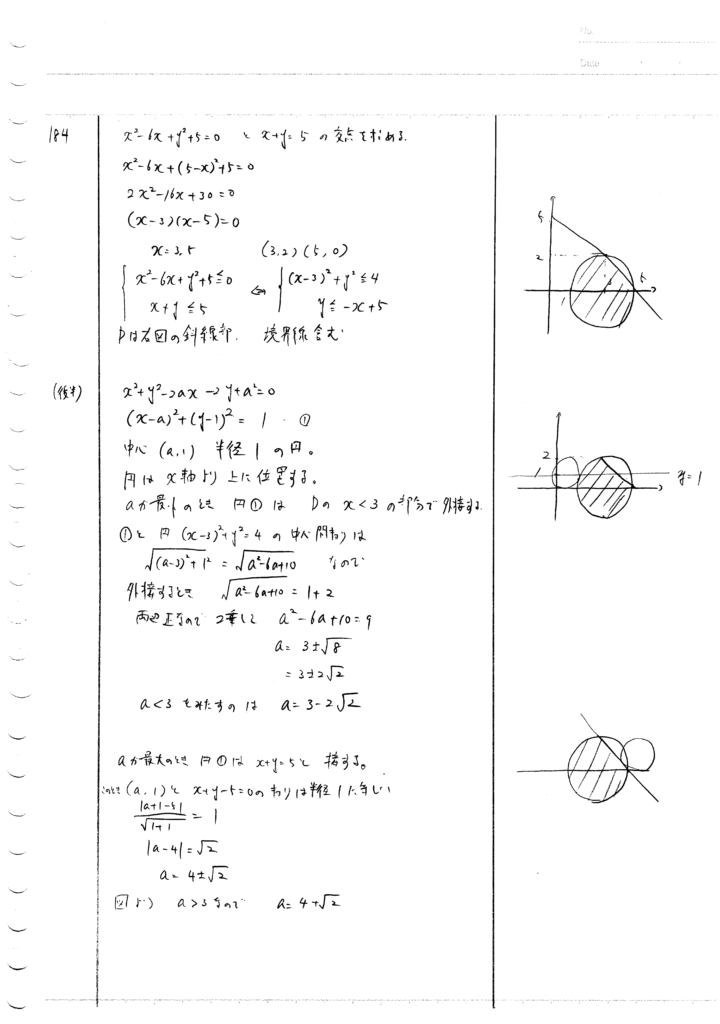 No.
Date
184
x²-6x+y²+5=0 と x+y=5 の交点を求める.
x²-6x+(5-x)²+5=0
2x²-16x+30=0
(x-3)(x-5)=0
x=3,5 (3,2) (5,0)
{ x²-6x+y²+5≦0 ⇔ { (x-3)²+y²≦4
x+y≦5 y≦-x+5
Dは右図の斜線部. 境界線含む
5
2
1
3
5
(後半)
x²+y²-2ax-2y+a²=0
(x-a)²+(y-1)²=1 ・①
中心 (a,1) 半径 1 の円。
円は x軸より上に位置する。
aが最小のとき 円①は Dの x<3 の部分で外接する.
①と 円 (x-3)²+y²=4 の中心間キョリは
√(a-3)²+1² = √a²-6a+10 なので
外接するとき √a²-6a+10 = 1+2
両辺正なので 2乗して a²-6a+10=9
a=3±√8
=3±2√2
a<3 をみたすのは a=3-2√2
2
y=1
aが最大のとき 円①は x+y=5と 接する。
このとき (a,1)と x+y-5=0のキョリは半径1に等しい
|a+1-5|/√1+1 = 1
|a-4|=√2
a=4±√2
図より a>3なので a=4+√2